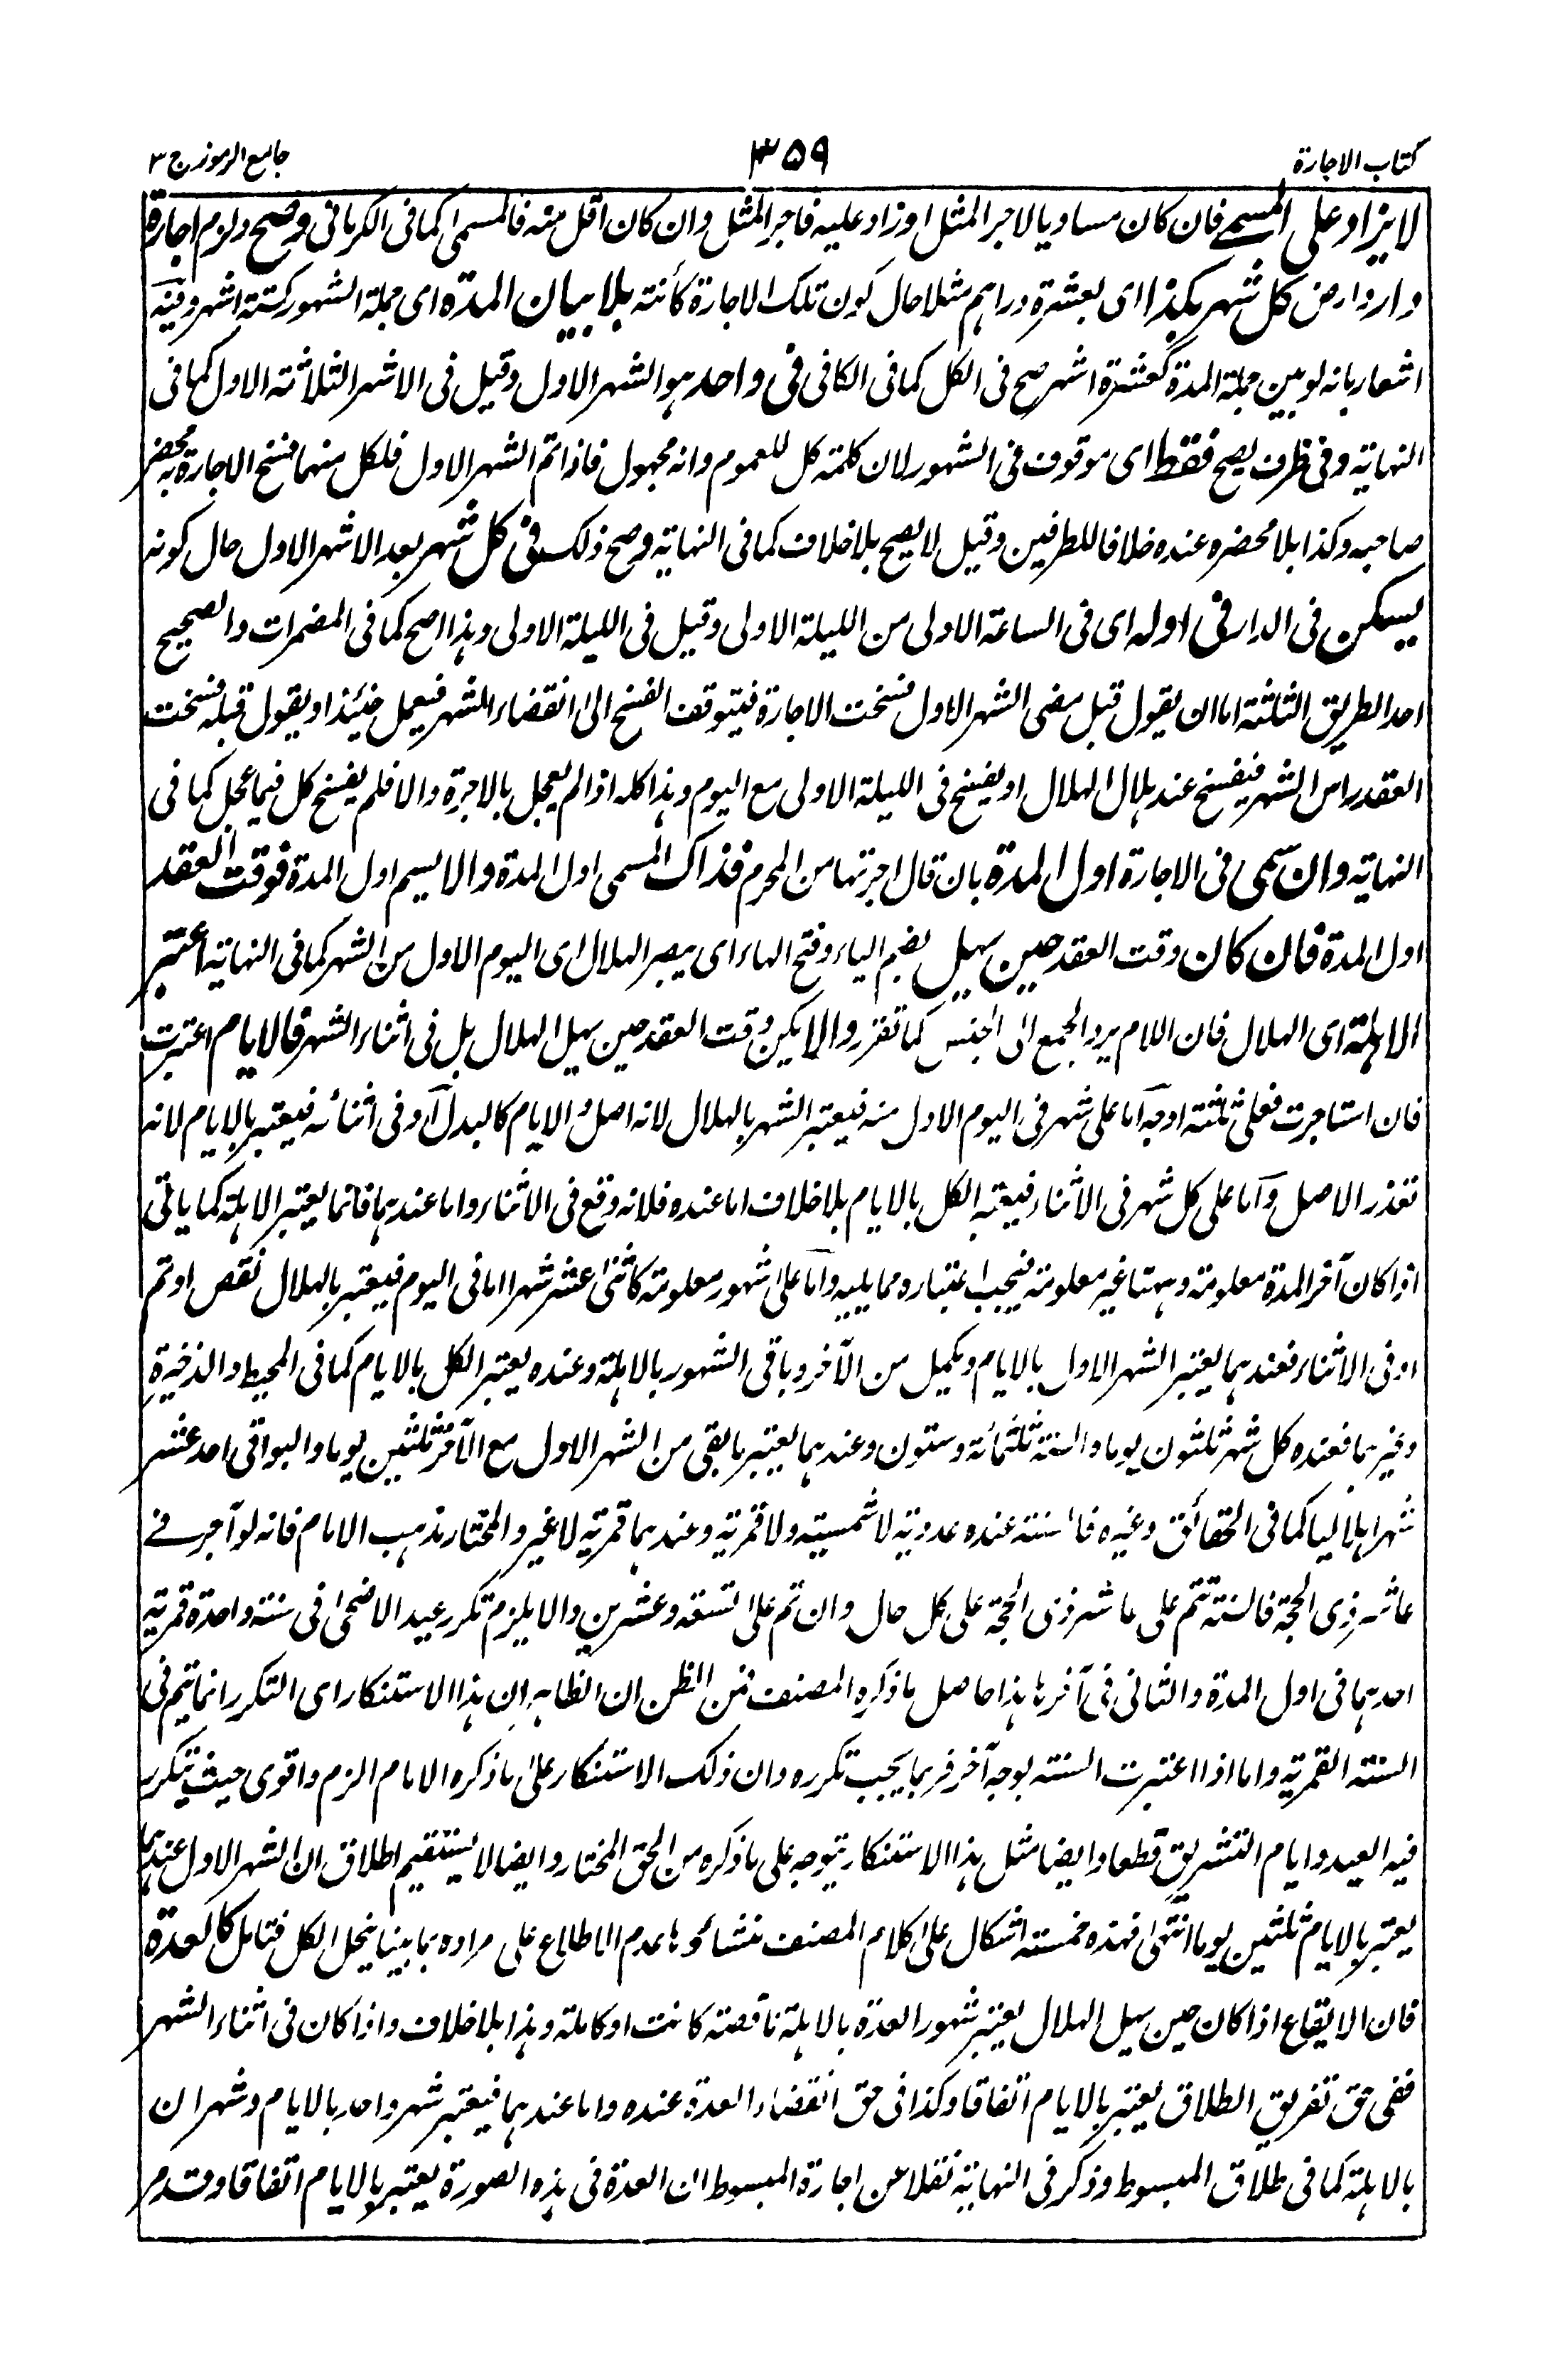 كتاب الاجارة
٣٥٩
جامع الرموز ج ٣
لا يزاد على المسمى فان كان مساويا لاجر المثل او زاد عليه فاجر المثل وان كان اقل منه فالمسمى كما فى الكرمانى وصح ولزم اجارة
دار وارض كل شهر بكذا اى بعشرة دراهم مثلا حال كون تلك الاجارة كائنة بلا بيان المدة اى جملة الشهور كستة اشهر وفيه
اشعار بانه لو بين جملة المدة كعشرة اشهر صح فى الكل كما فى الكافى فى واحد هو الشهر الاول وقيل فى الاشهر الثلاثة الاول كما فى
النهاية وفى ظرف يصح فقط اى موقوف فى الشهور لان كلمة كل للعموم وانه مجهول فاذا تم الشهر الاول فلكل منهما فسخ الاجارة بمحضر
صاحبه وكذا بلا محضره عنده خلافا للطرفين وقيل لا يصح بلا خلاف كما فى النهاية وصح ذلك فى كل شهر بعد الاشهر الاول حال كونه
يسكن فى الدار فى اوله اى فى الساعة الاولى من الليلة الاولى وقيل فى الليلة الاولى وهذا اصح كما فى المضمرات والصحيح
احد الطريق الثلثة اما ان يقول قبل مضى الشهر الاول فسخت الاجارة فيتوقف الفسخ الى انقضاء الشهر فيعمل حينئذ او يقول قبله فسخت
العقد راس الشهر فينفسخ عند هلال الهلال او يفسخ فى الليلة الاولى مع اليوم وهذا كله اذا لم يعجل بالاجرة والا فلم يفسخ كل فيما عجل كما فى
النهاية وان سمى فى الاجارة اول المدة بان قال اجرتها من المحرم فذاك المسمى اول المدة والا يسم اول المدة فوقت العقد
اول المدة فان كان وقت العقد حين يهل بضم الياء وفتح الهاء اى يبصر الهلال اى اليوم الاول من الشهر كما فى النهاية اعتبر
الاهلة اى الهلال فان اللام يرد الجمع الى الجنس كما تقرر والا يكن وقت العقد حين يهل الهلال بل فى اثناء الشهر فالايام اعتبرت
فان استاجرت فعلى ثلثة اوجه اما على شهر فى اليوم الاول منه فيعتبر الشهر بالهلال لانه اصل والايام كالبدل او فى اثنائه فيعتبر بالايام لانه
تعذر الاصل واما على كل شهر فى الاثناء فيعتبر الكل بالايام بلا خلاف اما عنده فلانه وقع فى الاثناء واما عندهما فانما يعتبر الاهلة كما ياتى
اذا كان آخر المدة معلومة وههنا غير معلومة فيجب اعتباره مما يليه واما على شهور معلومة كاثنى عشر شهرا اما فى اليوم فيعتبر بالهلال نقص او تم
او فى الاثناء فعندهما يعتبر الشهر الاول بالايام ويكمل من الآخر وباقى الشهور بالاهلة وعنده يعتبر الكل بالايام كما فى المحيط والذخيرة
وغيرهما فعنده كل شهر ثلثون يوما والسنة ثلثمائة وستون وعندهما يعتبر ما بقى من الشهر الاول مع الآخر ثلثين يوما والبواقى احد عشر
شهرا هلاليا كما فى الحقائق وغيره فالسنة عنده عددية لا شمسية ولا قمرية وعندهما قمرية لا غير والمختار مذهب الامام فانه لو آجر فے
عاشر ذى الحجة فالسنة تتم على عاشر ذى الحجة على كل حال وان تم على التسعة وعشرين والا يلزم تكرر عيد الاضحى فى سنة واحدة قمرية
احدهما فى اول المدة والثانى فى آخرها هذا حاصل ما ذكره المصنف فمن الظن ان الظاهر ان هذا الاستنكار اى التكرر انما يتم فى
السنة القمرية واما اذا اعتبرت السنة بوجه آخر فربما يجب تكرره وان ذلك الاستنكار على ما ذكره الامام الزم واقوى حيث يتكرر
فيه العيد وايام التشريق قطعا وايضا مثل هذا الاستنكار يتوجه على ما ذكره من الحق المختار وايضا لا يستقيم اطلاق ان الشهر الاول عندهما
يعتبر بالايام ثلثين يوما انتهى فهذه خمسة اشكال على كلام المصنف منشاؤها عدم الاطلاع على مراده بما بينا ينحل الكل فتامل كالعدة
فان الايقاع اذا كان حين يهل الهلال يعتبر شهور العدة بالاهلة ناقصة كانت او كاملة وهذا بلا خلاف واذا كان فى اثناء الشهر
ففى حق تفريق الطلاق يعتبر بالايام اتفاقا وكذا فى حق انقضاء العدة عنده واما عندهما فيعتبر شهر واحد بالايام وشهران
بالاهلة كما فى طلاق المبسوط وذكر فى النهاية نقلا عن اجارة المبسوط ان العدة فى هذه الصورة يعتبر بالايام اتفاقا وقدم